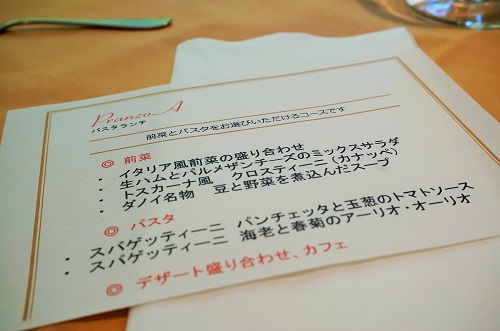 Pranzo A
パスタランチ
前菜とパスタをお選びいただけるコースです
◎ 前菜
・ イタリア風前菜の盛り合わせ
・ 生ハムとパルメザンチーズのミックスサラダ
・ トスカーナ風 クロスティーニ(カナッペ)
・ ダノイ名物 豆と野菜を煮込んだスープ
◎ パスタ
・ スパゲッティーニ パンチェッタと玉葱のトマトソース
・ スパゲッティーニ 海老と春菊のアーリオ・オーリオ
◎ デザート盛り合わせ、カフェ